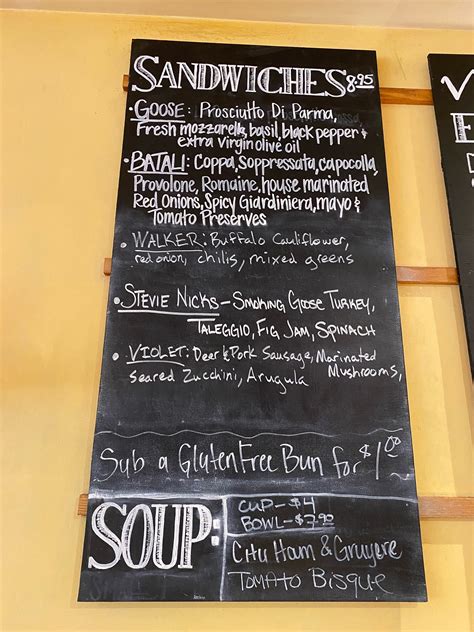 SANDWICHES 8.95
• GOOSE: Prosciutto Di Parma,
Fresh mozzarella, basil, black pepper &
extra virgin olive oil
• BATALI: Coppa, Soppressata, capocolla,
Provolone, Romaine, house marinated
Red Onions, Spicy Giardiniera, mayo &
Tomato Preserves
• WALKER: Buffalo Cauliflower,
red onion, chilis, mixed greens
• STEVIE NICKS – SMOKING GOOSE TURKEY,
TALEGGIO, FIG JAM, SPINACH
• VIOLET: Deer & Pork Sausage, Marinated
Mushrooms,
Seared Zucchini, Arugula
Sub a Gluten Free Bun for $1.00
SOUP:
CUP – $4
BOWL – $7.90
Ham & Gruyere
TOMATO BISQUE